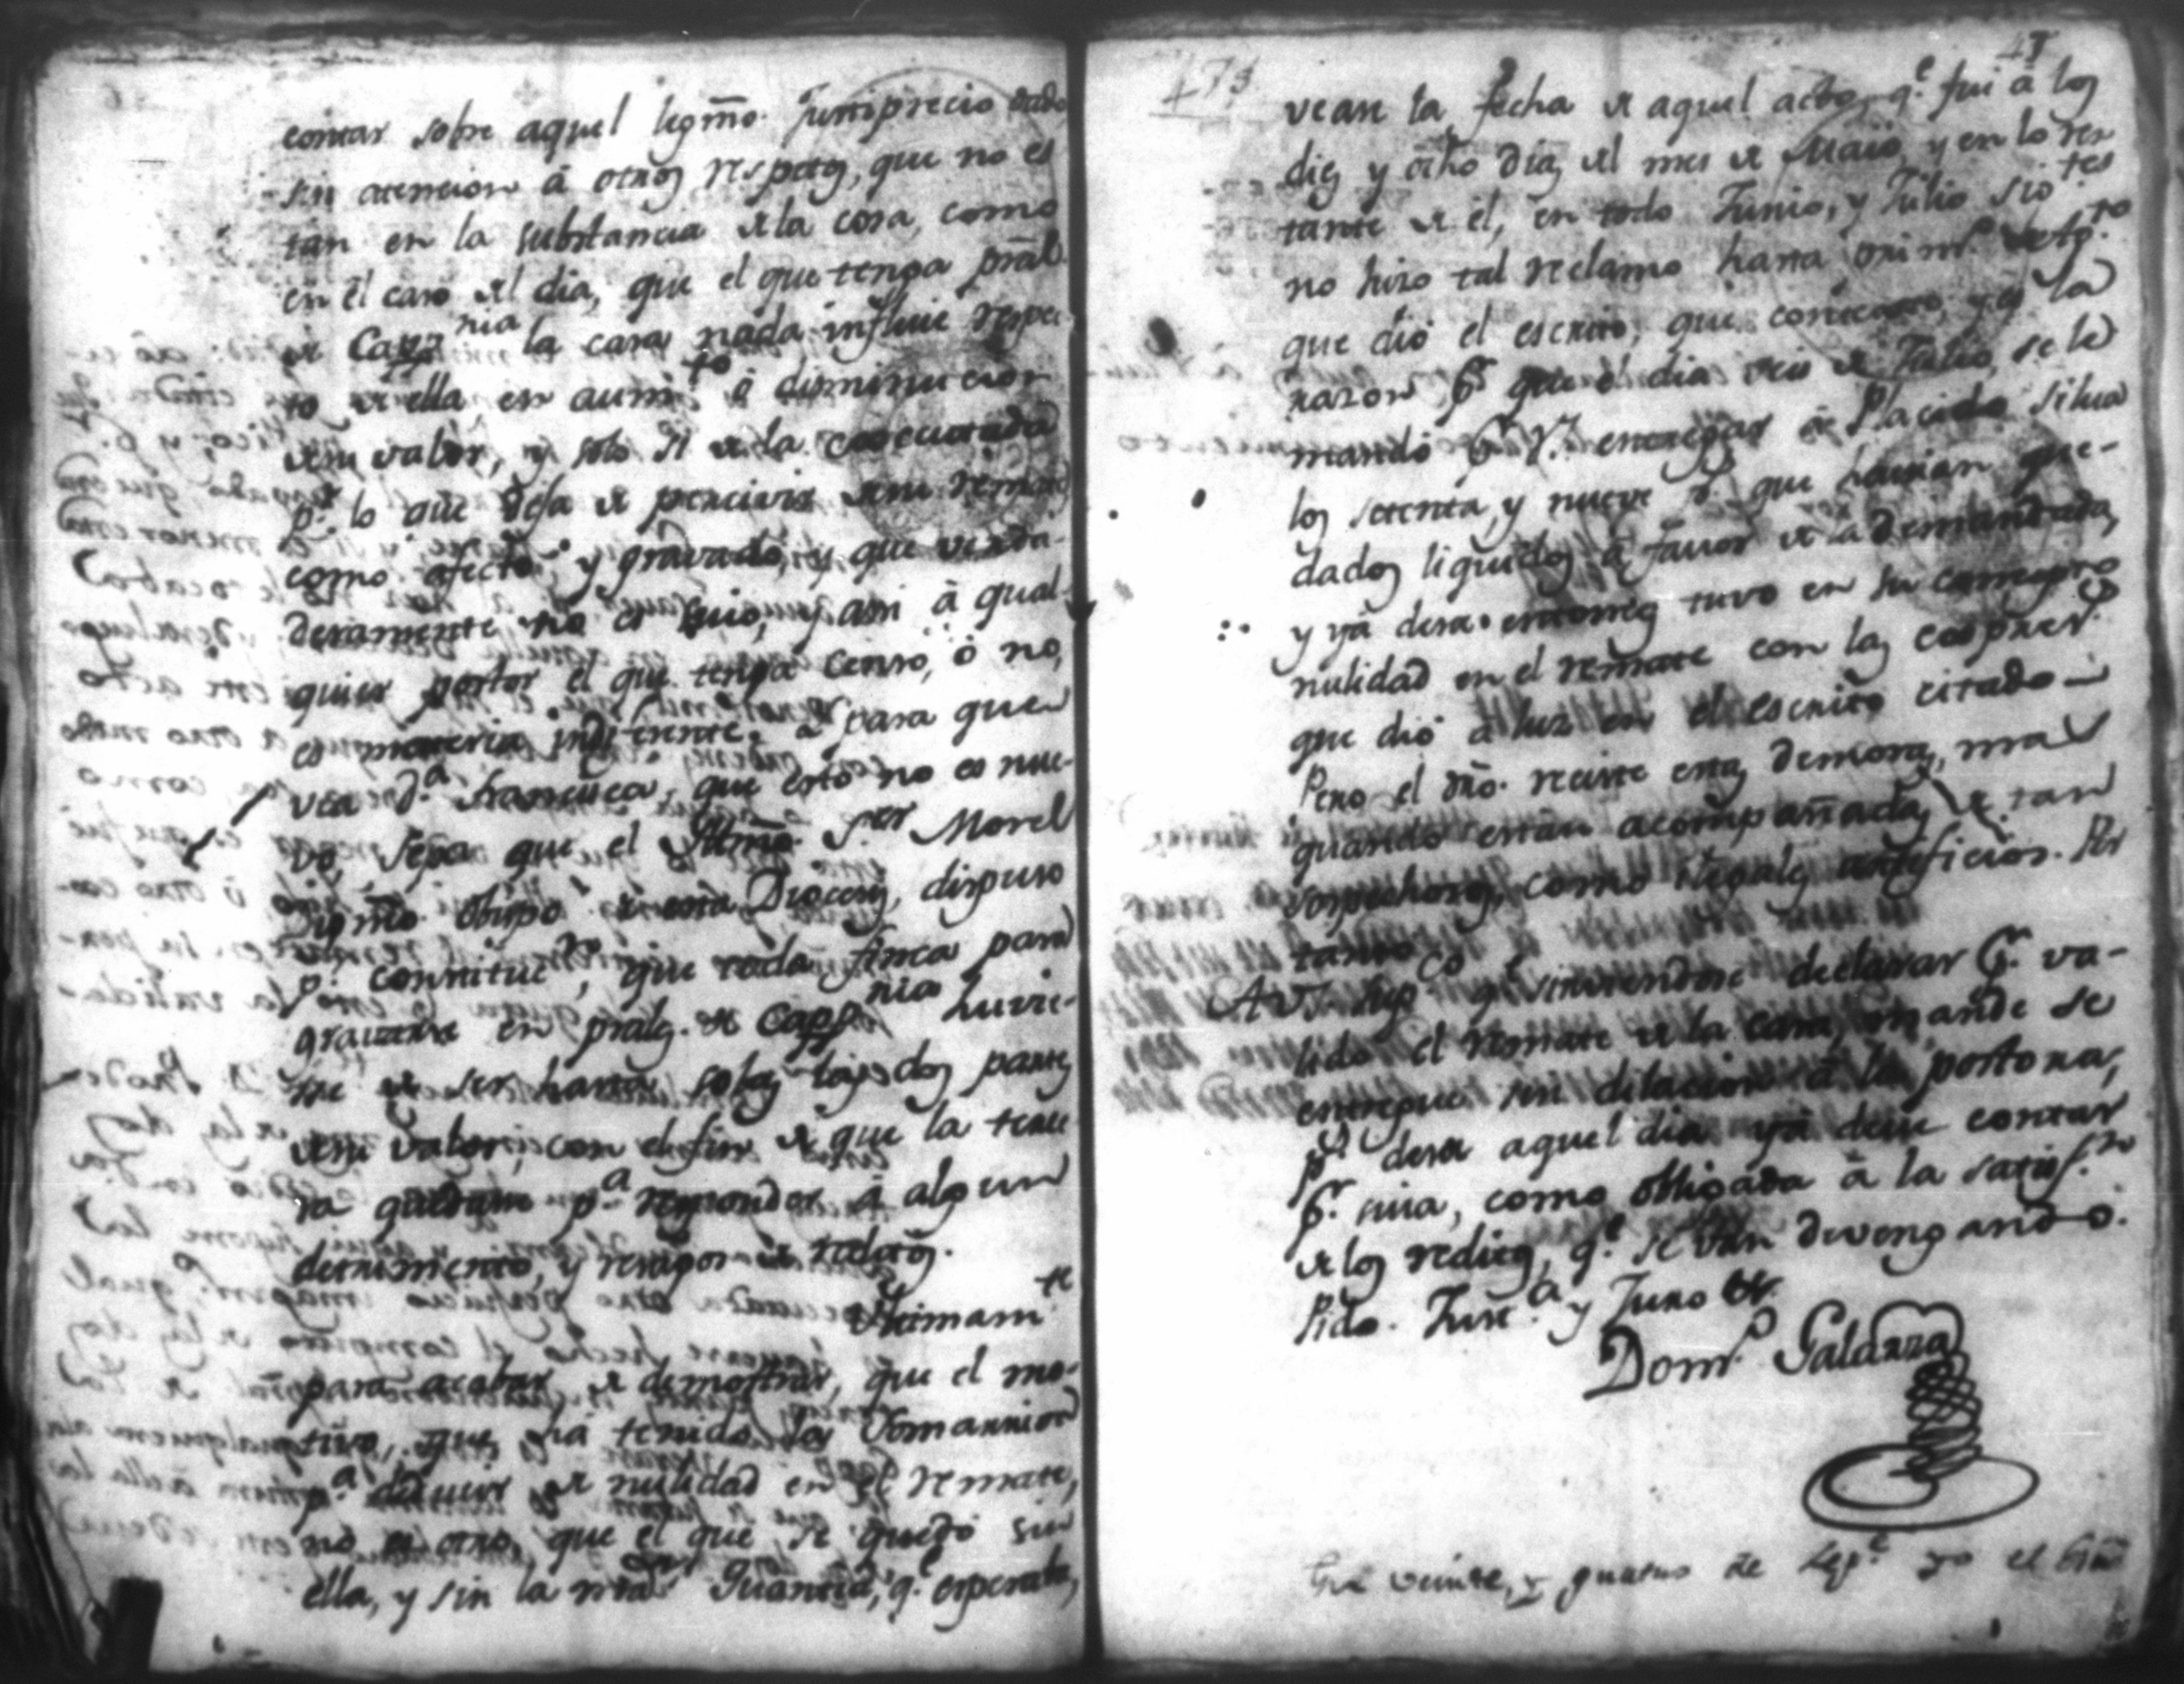 contar sobre aquel legmo. Justiprecio dado
sin atencion â otros respetos, que no es
tan en la substancia de la cosa, como
en el caso del dia, que el que tenga pral.
de Capp.nia la casa nada influie respec
to de ella en aum.to ô diminucion
de su valor, y solo si de la executada
p.r lo que deja de percivir de su remate
como afecto, y gravado, y que verda-
deramente no es suio, y asi â qual-
quier postor el que tenga censo, ô no,
es materia indiferente. Y para que
vea D.a Francisca, que esto no es nue-
vo, sepa que el Illmô. S.or Morel
Dig.mo Obispo de esta Diocesis, dispuso
p.r constituc.n, que toda finca para
gravarse en prales. de Capp.nia huvie-
se de ser hasta solas las dos partes
de su valor, con el fin de que la terce
ra quedase p.a responder â algun
detrimento, y resagos de reditos.
Ultimam.te
para acabar de demostrar, que el mo-
tivo, que ha tenido la
p.a deducir de nulidad en el remate,
no es otro, que el que se quedô sin
ella, y sin la Guancia, q.e esperaba,
473 47
vease la fecha de aquel acto, q.e fui â los
diez y ocho dias del mes de Maio, y en lo res
tante de êl, en todo Junio, y Julio sig.tes
no hizo tal reclamo hasta
que diô el escrito, que contexto, y es la
razon p.r que el dia seis de Julio, se le
mandô p.r V. entregar â Placido Silva
los setenta, y nueve p.s que havian que-
dados liquidos â favor de la demandada,
y yâ desde entonces tuvo en su concepto
nulidad en el remate con las
que diô â luz en el escrito citado
Pero el dro. resiste estas demoras, mas
quando estan acompañadas de tan
sospechosos, como ilegales artificios. Por
tanto
A V. sup.co q.e sirviendose declarar p.r va-
lido el remate de la casa, mande se
entregue sin dilacion â la postora,
p.s desde aquel dia yâ deve contar
p.r suia, como obligada â la satisf.n
de los reditos, q.e se van devengando.
Pido Just.a y Juro &.
Dom.o Galarza
En veinte, y quatro de Sep.e yo el Ess.no